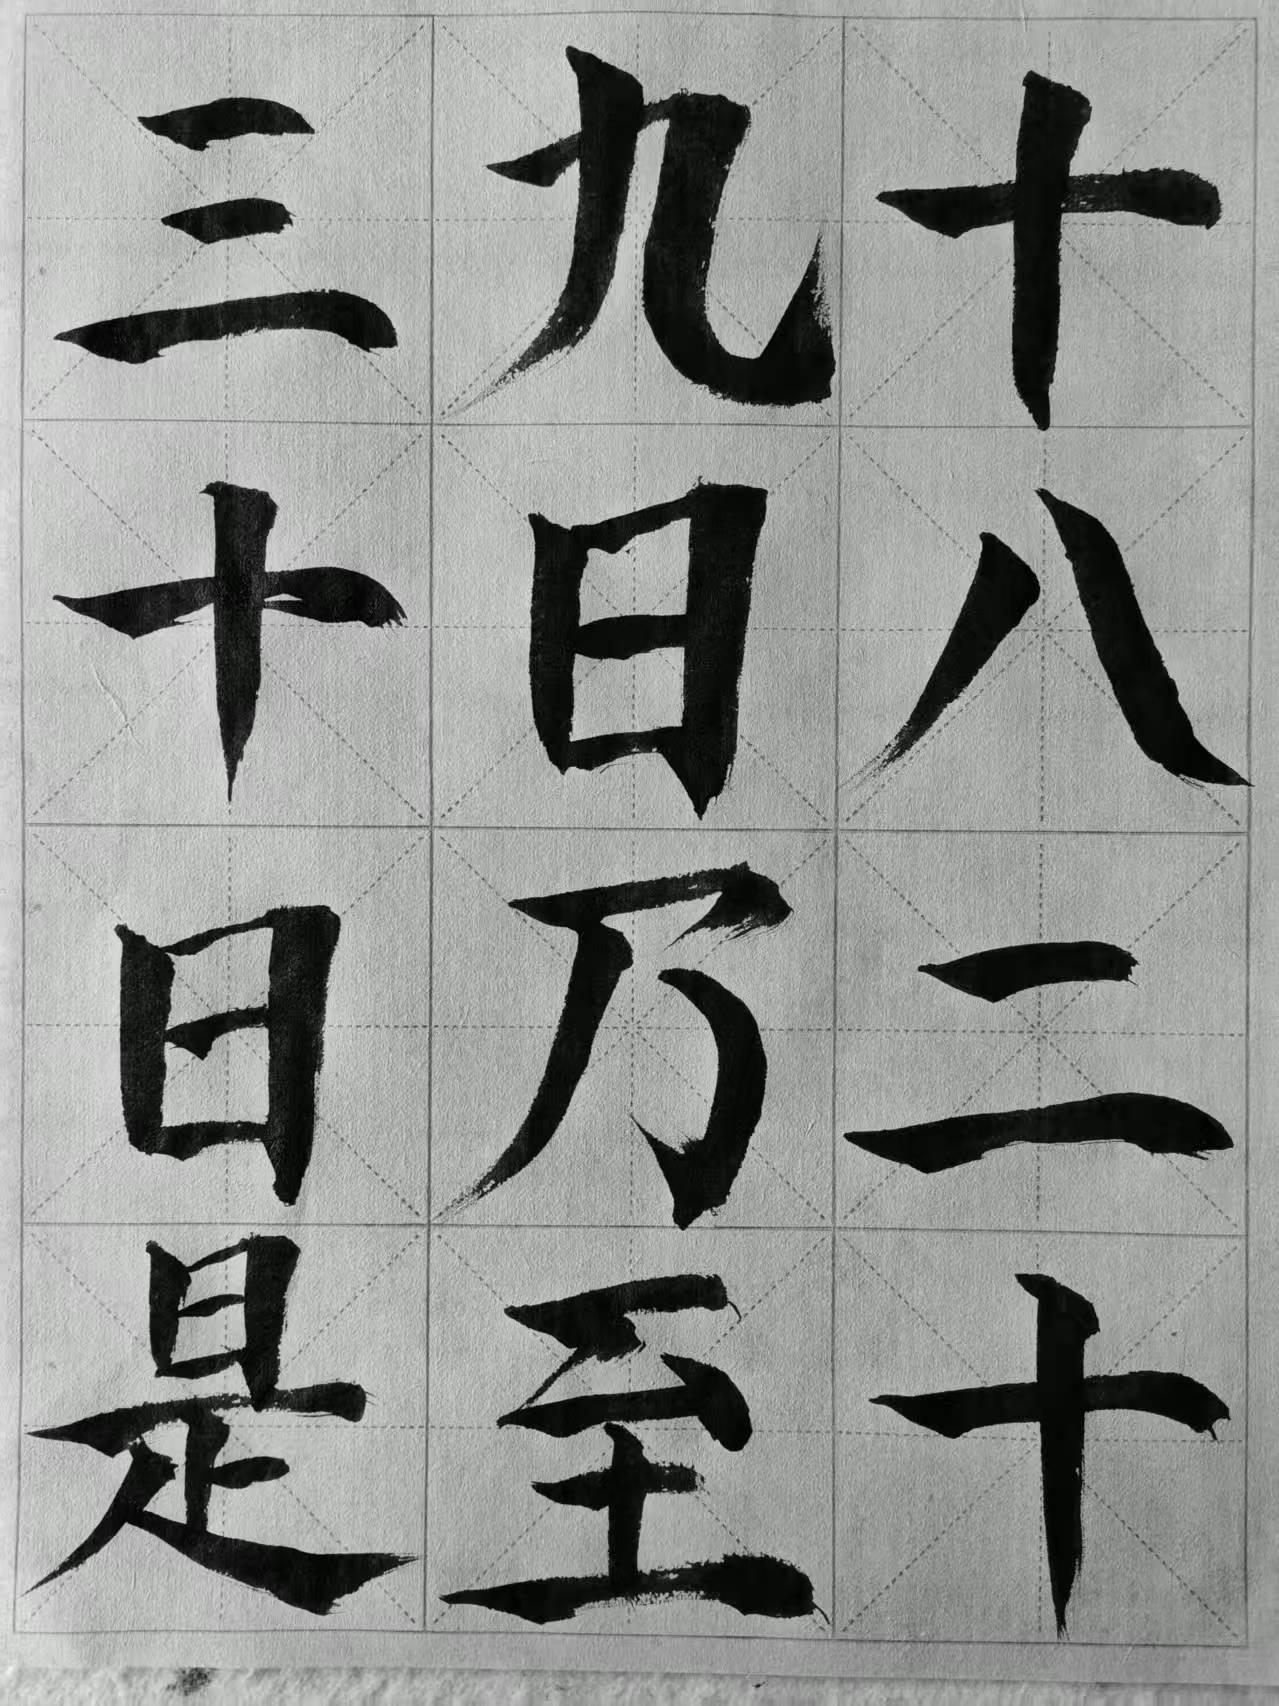 十八二十
九日乃至
三十日是